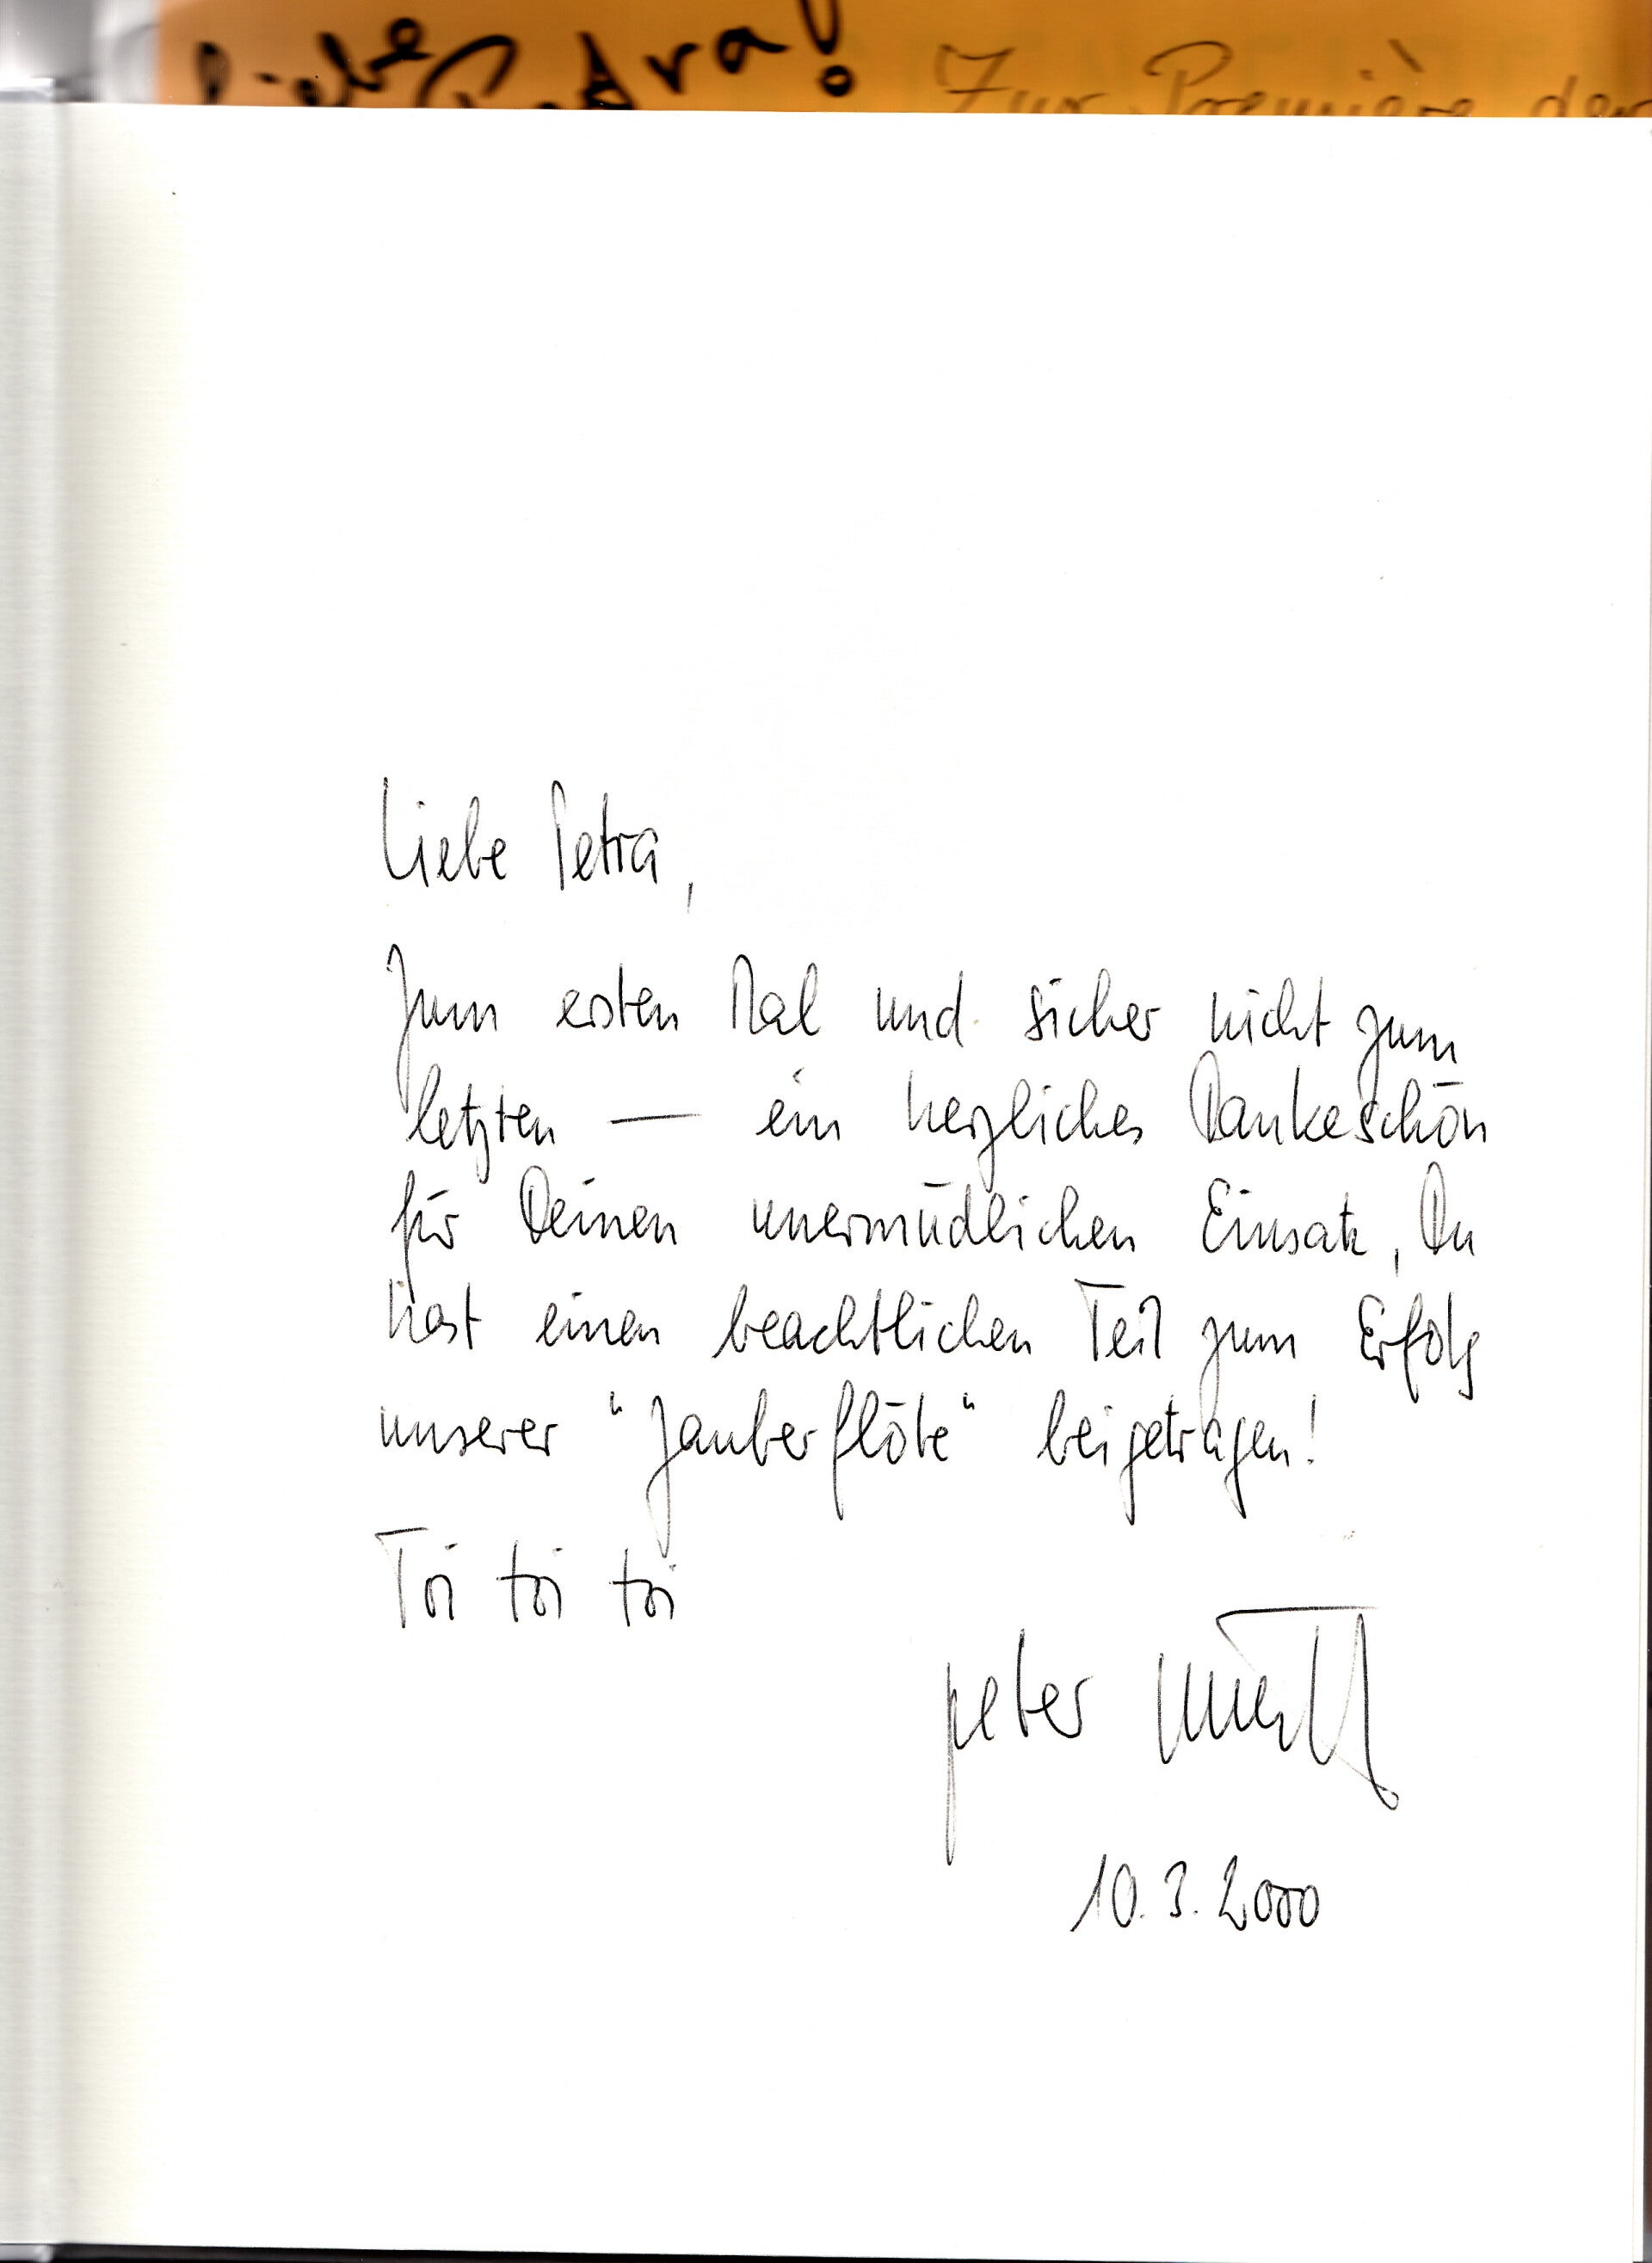 Liebe Petra!
Zur Premiere der
Liebe Petra,
Zum ersten Mal und sicher nicht zum
letzten — ein herzliches Dankeschön
für Deinen unermüdlichen Einsatz, Du
hast einen beachtlichen Teil zum Erfolg
unserer "Zauberflöte" beigetragen!
Toi toi toi
peter
10.3.2000